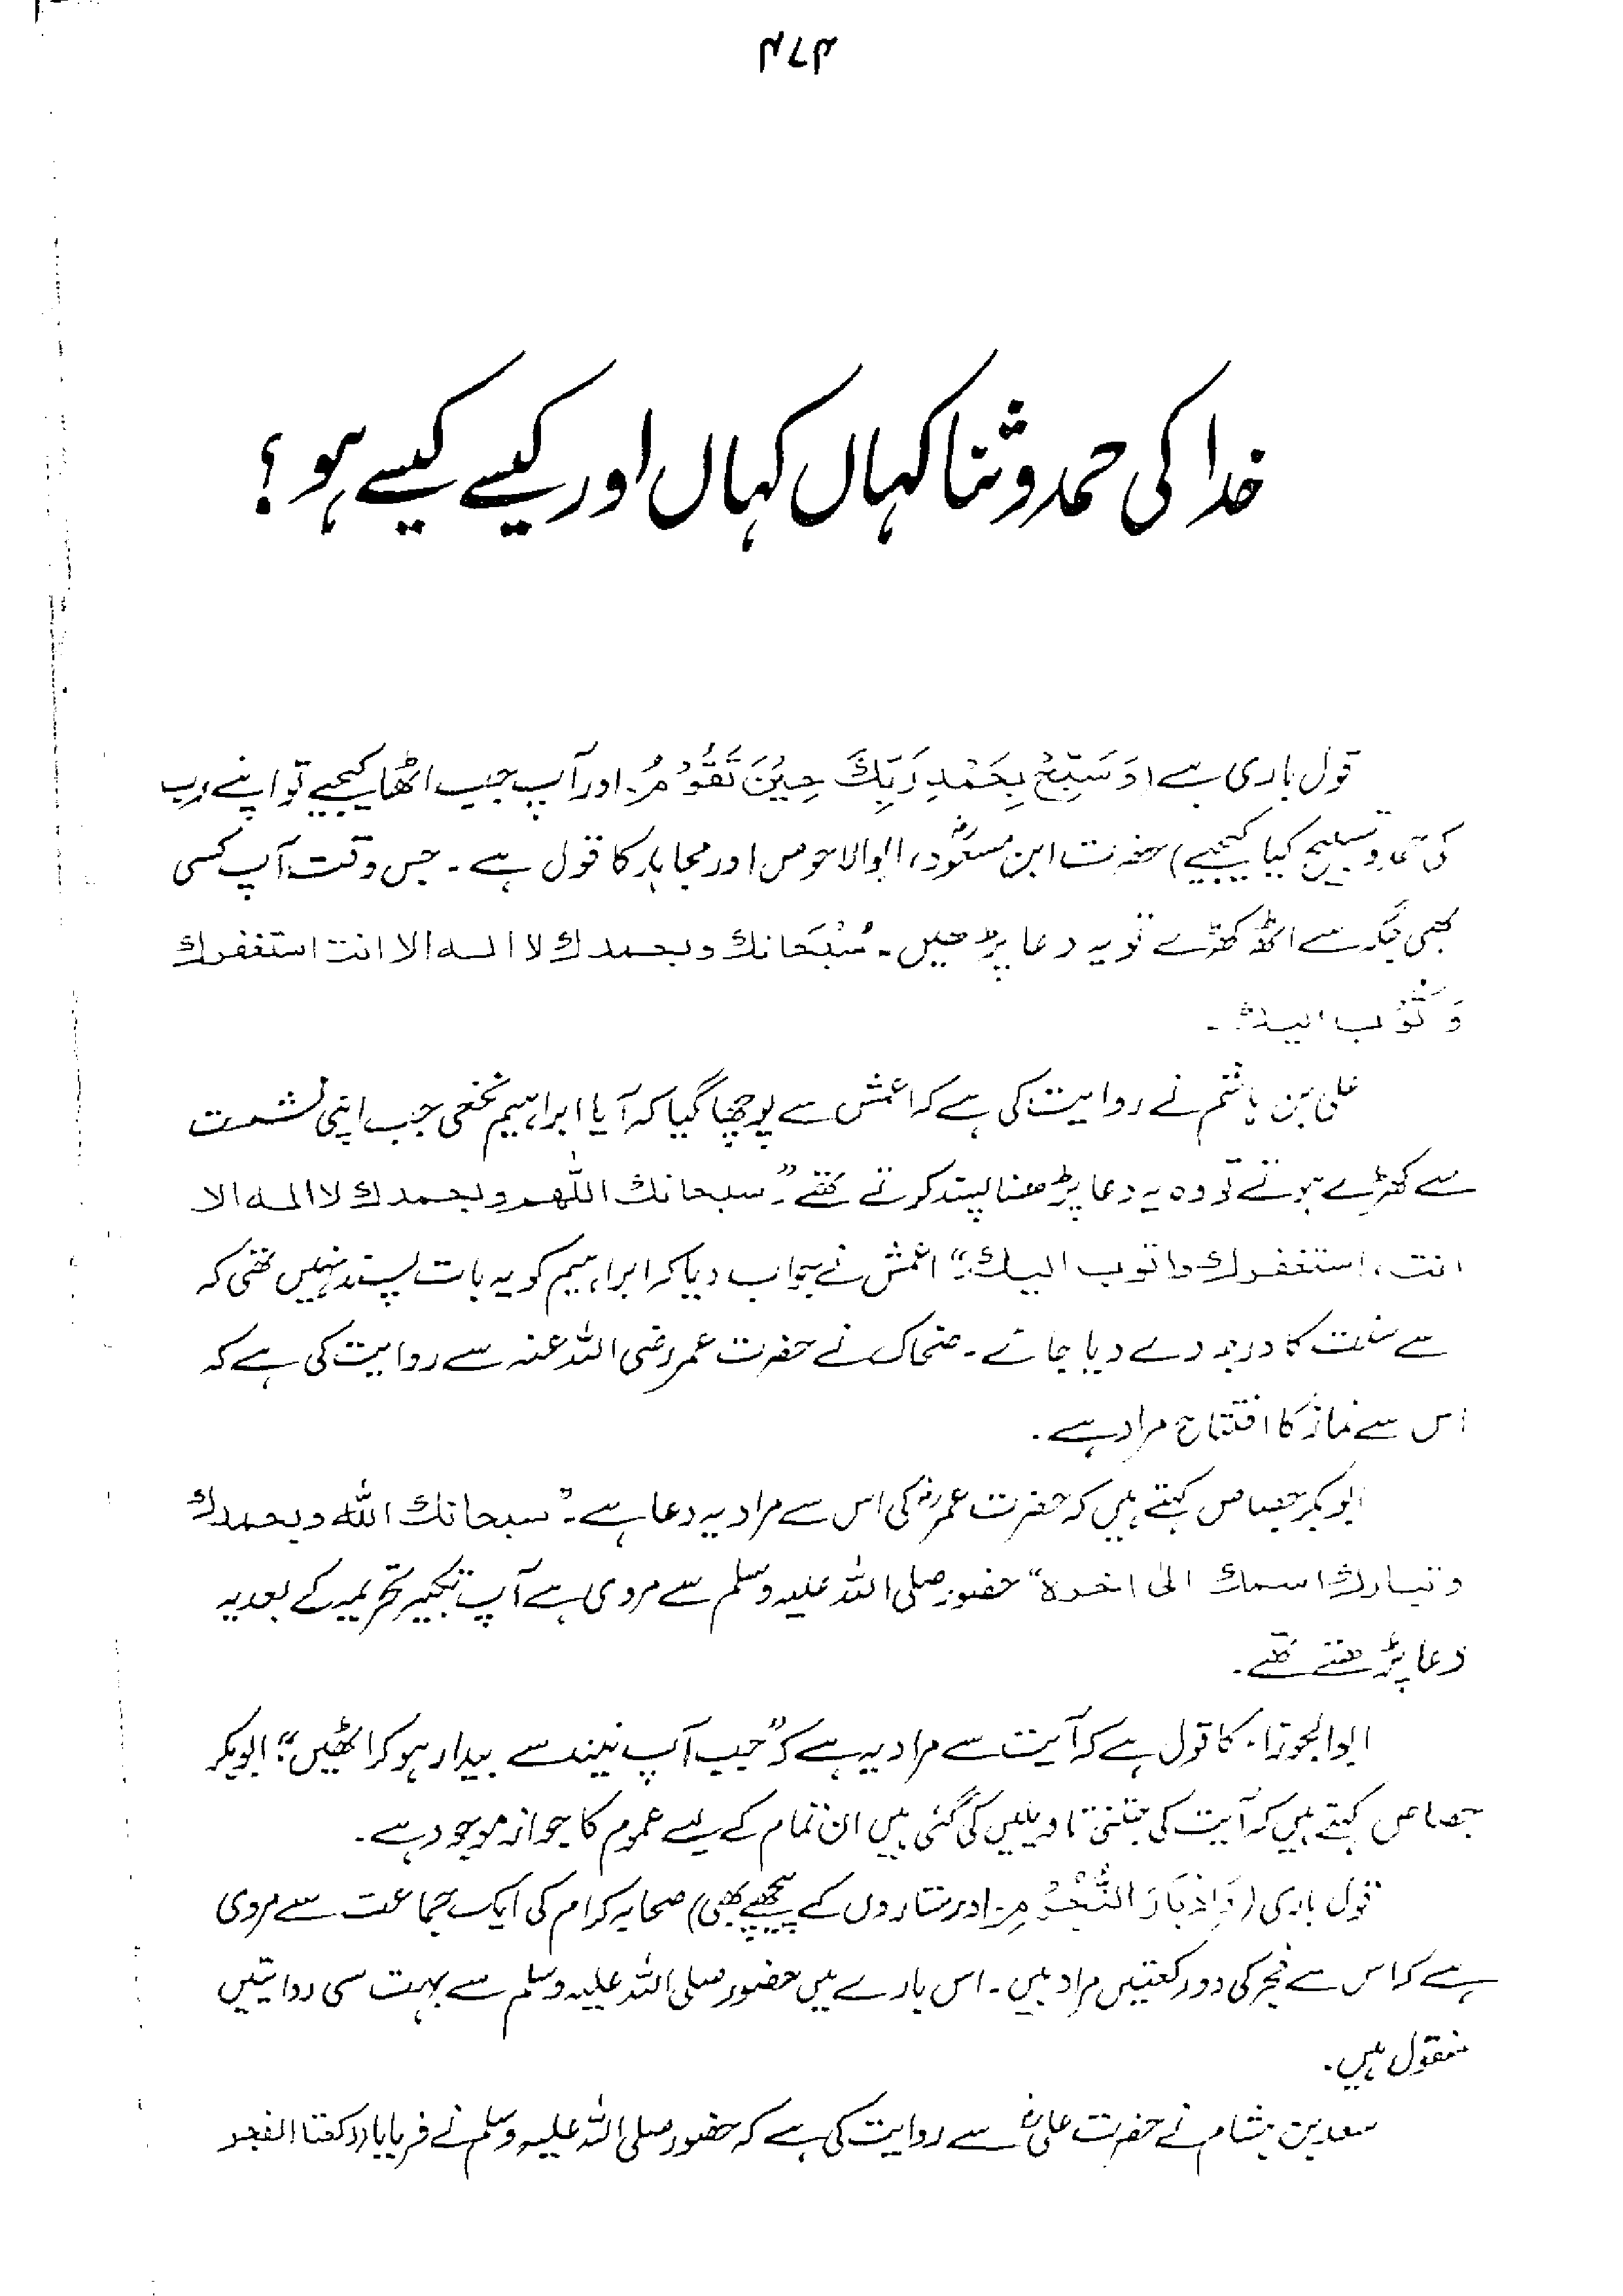 ۴۷۴
خدا کی حمد و ثنا کہاں کہاں اور کیسے کیسے ہو؟
قول باری ہے (وَسَبِّحْ بِحَمْدِ رَبِّكَ حِيْنَ تَقُوْمُ۔ اور آپ جب اٹھا کیجیے تو اپنے رب
کی حمد و تسبیح کیا کیجیے) حضرت ابن مسعودؓ، ابوالاحوص اور مجاہد کا قول ہے۔ جس وقت آپ کسی
بھی جگہ سے اٹھ کھڑے تو یہ دعا پڑھیں۔ سُبْحَانك وبحمدك لا اله الا انت استغفرك
وَ تُوْب اليك۔
علی بن ہاشم نے روایت کی ہے کہ اعمش سے پوچھا گیا کہ آیا ابراہیم نخعی جب اپنی نشست
سے کھڑے ہوتے تو وہ یہ دعا پڑھنا پسند کرتے تھے "سبحانك اللهم وبحمدك لا اله الا
انت، استغفرك واتوب اليك" اعمش نے جواب دیا کہ ابراہیم کو یہ بات پسند نہیں تھی کہ
سے سنت کا درجہ دے دیا جائے۔ ضحاک نے حضرت عمر رضی اللہ عنہ سے روایت کی ہے کہ
اس سے نماز کا افتتاح مراد ہے۔
ابوبکر جصاص کہتے ہیں کہ حضرت عمرؓ کی اس سے مراد یہ دعا ہے۔ "سبحانك الله وبحمدك
وتبارك اسمك الیٰ اخره" حضور صلی اللہ علیہ وسلم سے مروی ہے آپ تکبیر تحریمہ کے بعد یہ
دعا پڑھتے تھے۔
ابوالجوزاء کا قول ہے کہ آیت سے مراد یہ ہے کہ "جب آپ نیند سے بیدار ہو کر اٹھیں" ابوبکر
جصاص کہتے ہیں کہ آیت کی جتنی تاویلیں کی گئی ہیں ان تمام کے لیے عموم کا جواز موجود ہے۔
قول باری (وَاِدْبَارَ النُّجُوْمِ۔ اور ستاروں کے پیچھے بھی) صحابہ کرام کی ایک جماعت سے مروی
ہے کہ اس سے فجر کی دو رکعتیں مراد ہیں۔ اس بارے میں حضور صلی اللہ علیہ وسلم سے بہت سی روایتیں
منقول ہیں۔
سعد بن ہشام نے حضرت عائشہؓ سے روایت کی ہے کہ حضور صلی اللہ علیہ وسلم نے فرمایا (ركعتا الفجر